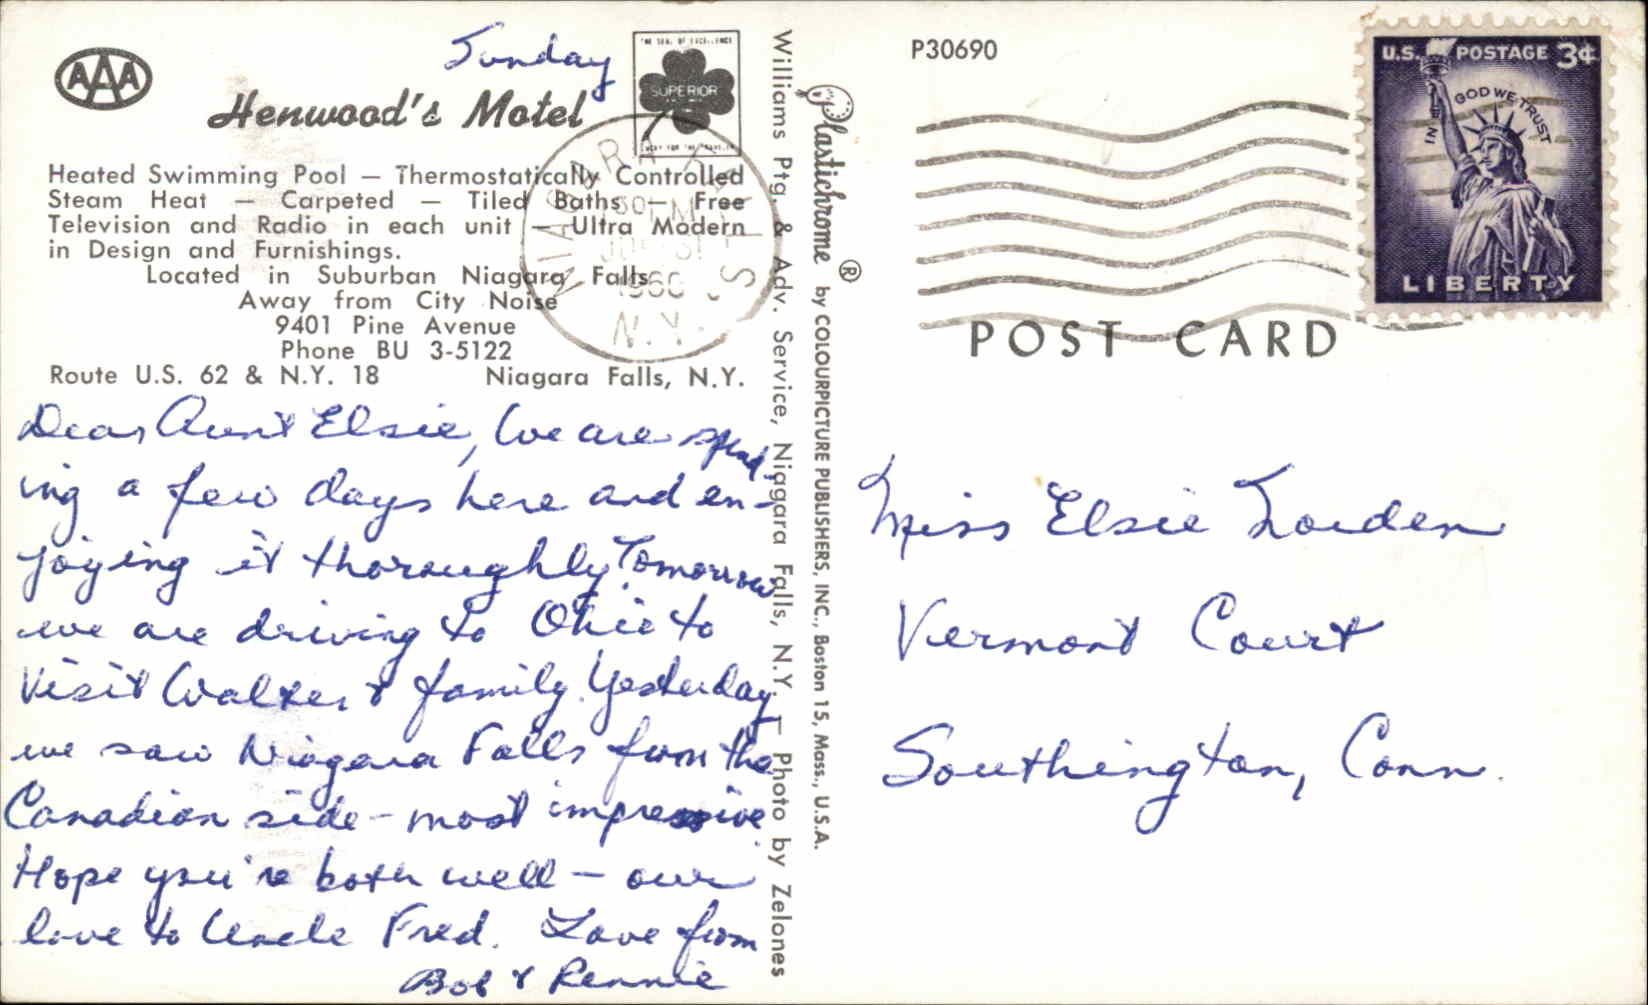 Sunday
AAA
THE SEAL OF EXCELLENCE
SUPERIOR
Henwood's Motel
Heated Swimming Pool — Thermostatically Controlled
Steam Heat — Carpeted — Tiled Baths — Free
Television and Radio in each unit — Ultra Modern
in Design and Furnishings.
Located in Suburban Niagara Falls
Away from City Noise
9401 Pine Avenue
Phone BU 3-5122
Route U.S. 62 & N.Y. 18 Niagara Falls, N.Y.
NIAGARA FALLS
PM
1960
N.Y.
Dear Aunt Elsie, We are spend-
ing a few days here and en-
joying it thoroughly. Tomorrow
we are driving to Ohio to
visit Walter & family. Yesterday
we saw Niagara Falls from the
Canadian side - most impressive.
Hope you're both well - our
love to Uncle Fred. Love from
Bob & Rennie
Williams Ptg. & Adv. Service, Niagara Falls, N.Y. — Photo by Zelones
Plastichrome ® by COLOURPICTURE PUBLISHERS, INC., Boston 15, Mass., U.S.A.
P30690
U.S. POSTAGE 3¢
IN GOD WE TRUST
LIBERTY
POST CARD
Miss Elsie
Vermont Court
Southington, Conn.